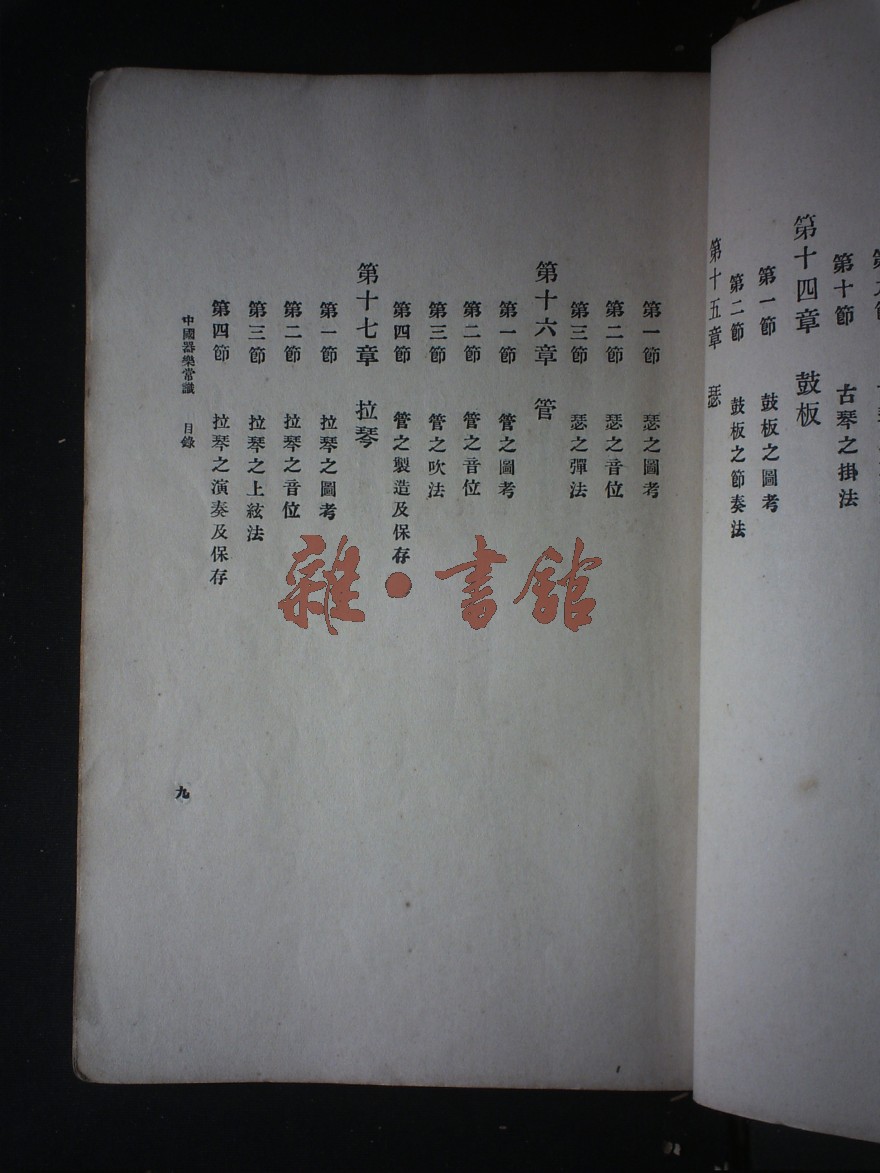 第十節　古琴之掛法
第十四章　鼓板
第一節　鼓板之圖考
第二節　鼓板之節奏法
第十五章　瑟
第一節　瑟之圖考
第二節　瑟之音位
第三節　瑟之彈法
第十六章　管
第一節　管之圖考
第二節　管之音位
第三節　管之吹法
第四節　管之製造及保存
第十七章　拉琴
第一節　拉琴之圖考
第二節　拉琴之音位
第三節　拉琴之上絃法
第四節　拉琴之演奏及保存
中國器樂常識　目錄
九
雜·書館